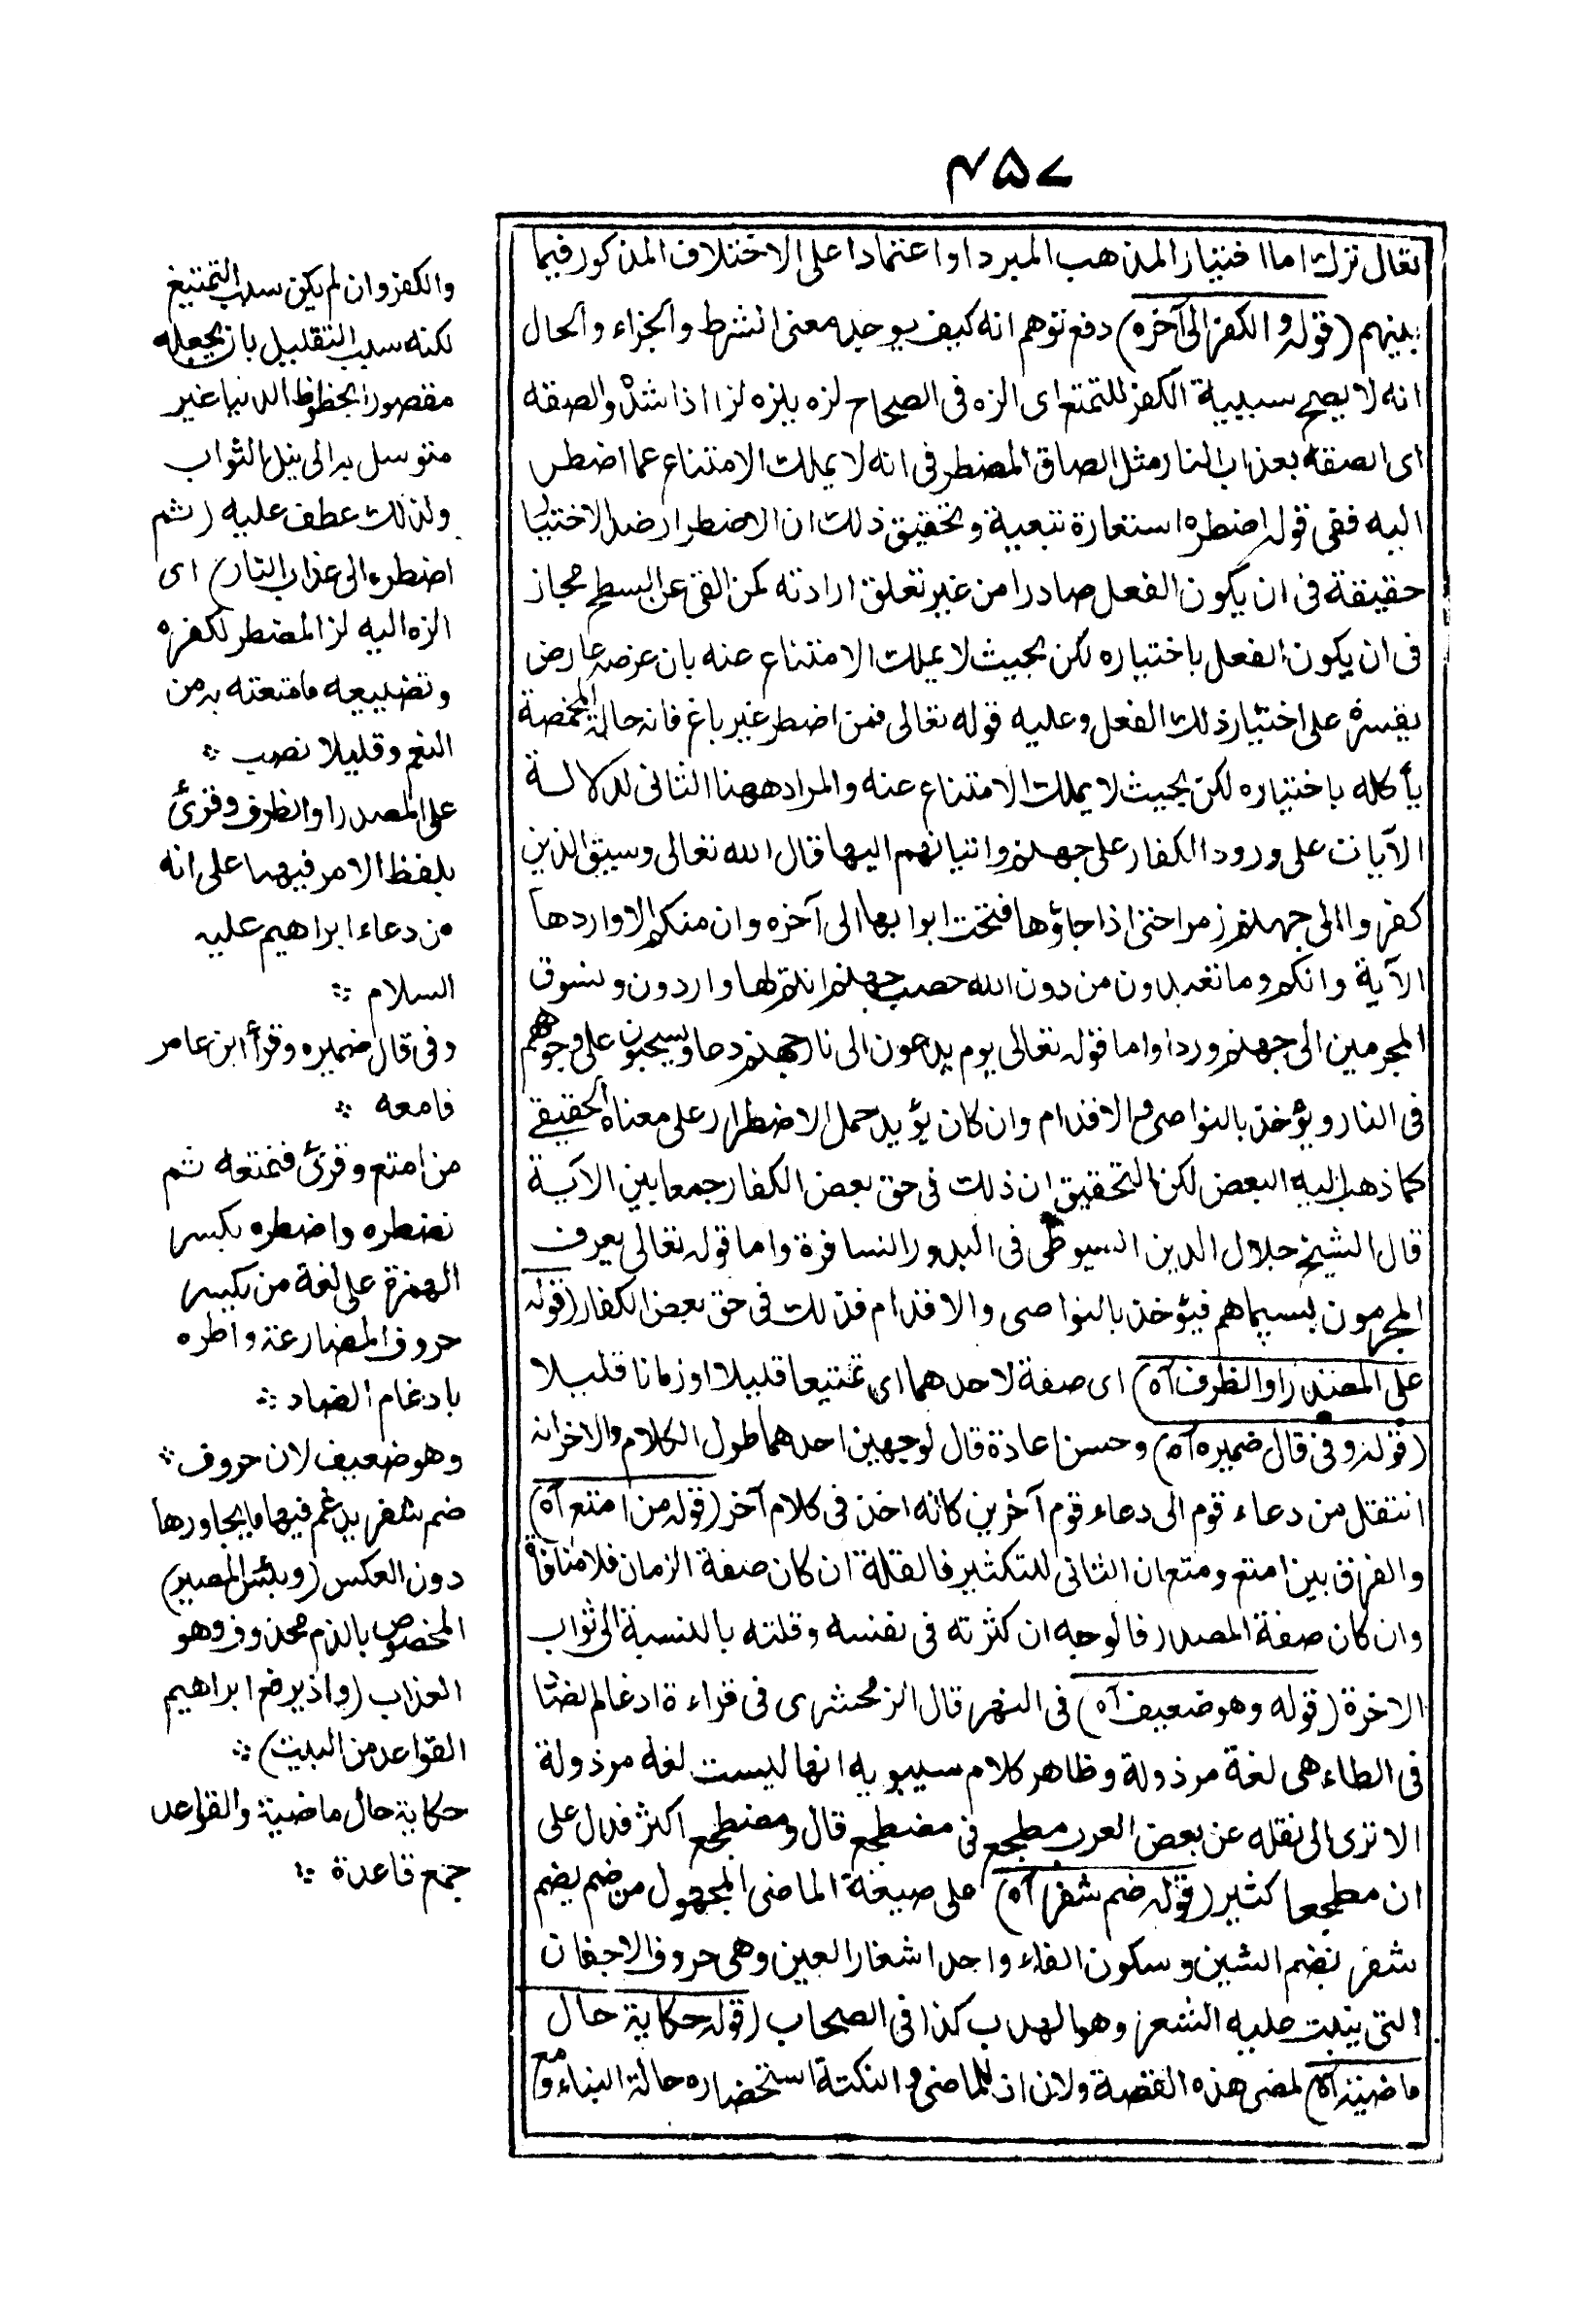 ٤٥٧
يقال نزلت اما اختيار المذهب المبرد او اعتمادا على الاختلاف المذكور فيما
بينهم (قوله والكفر الى آخره) دفع توهم انه كيف يوجد معنى الشرط والجزاء والحال
انه لا يصح سببية الكفر للتمتع اى الزه فى الصحاح لزه يلزه لزا اذا شده والصقه
اى الصقه بعذاب النار مثل الصاق المضطر فى انه لا يملك الامتناع عما اضطر
اليه ففى قوله اضطره استعارة تبعية وتحقيق ذلك ان الاضطرار ضد الاختيار
حقيقة فى ان يكون الفعل صادرا من غير تعلق ارادته كمن القى عن السطح مجاز
فى ان يكون الفعل باختياره لكن بحيث لا يملك الامتناع عنه بان عرضه عارض
يقسره على اختيار ذلك الفعل وعليه قوله تعالى فمن اضطر غير باغ فانه حالة المخمصة
يأكله باختياره لكن بحيث لا يملك الامتناع عنه والمراد ههنا الثانى لدلالة
الآيات على ورود الكفار على جهنم واتيانهم اليها قال الله تعالى وسيق الذين
كفروا الى جهنم زمرا حتى اذا جاؤها فتحت ابوابها الى آخره وان منكم الا واردها
الآية وانكم وما تعبدون من دون الله حصب جهنم انتم لها واردون ونسوق
المجرمين الى جهنم وردا واما قوله تعالى يوم يدعون الى نار جهنم دعا ويسحبون على وجوههم
فى النار ويؤخذ بالنواصى والاقدام وان كان يؤيد حمل الاضطرار على معناه الحقيقى
كما ذهب اليه البعض لكن التحقيق ان ذلك فى حق بعض الكفار جمعا بين الآية
قال الشيخ جلال الدين السيوطى فى البدور السافرة واما قوله تعالى يعرف
المجرمون بسيماهم فيؤخذ بالنواصى والاقدام فذلك فى حق بعض الكفار (قوله
على المصدر او الظرف آه) اى صفة لاحدهما اى تمتيعا قليلا او زمانا قليلا
(قوله وفى قال ضميره آه) وحسن اعادة قال لوجهين احدهما طول الكلام والاخر انه
انتقل من دعاء قوم الى دعاء قوم آخرين كانه اخذ فى كلام آخر (قوله من امتع آه)
والفرق بين امتع ومتع ان الثانى للتكثير فالقلة ان كان صفة الزمان فلا منافاة
وان كان صفة المصدر فالوجه ان كثرته فى نفسه وقلته بالنسبة الى ثواب
الاخرة (قوله وهو ضعيف آه) فى النهر قال الزمخشرى فى قراءة ادغام الضاد
فى الطاء هى لغة مرذولة وظاهر كلام سيبويه انها ليست لغة مرذولة
الا ترى الى نقله عن بعض العرب مطجع فى مضطجع قال ومضطجع اكثر فدل على
ان مطجعا كثير (قوله ضم شفر آه) على صيغة الماضى المجهول من ضم يضم
شفر بضم الشين وسكون الفاء واحد اشفار العين وهى حروف الاجفان
التى ينبت عليه الشعر وهو الهدب كذا فى الصحاب (قوله حكاية حال
ماضية آه) لمضى هذه القصة ولان اذ للماضى والنكتة استحضاره حالة البناء و مع
والكفر وان لم يكن سبب التمتيع
لكنه سبب التقليل بان يجعله
مقصورا بحظوظ الدنيا غير
متوسل به الى نيل الثواب
ولذلك عطف عليه (ثم
اضطره الى عذاب النار) اى
الزه اليه لز المضطر لكفره
وتضييعه ما متعته به من
النعم وقليلا نصب ❖
على المصدر او الظرف وقرئ
بلفظ الامر فيهما على انه
من دعاء ابراهيم عليه
السلام ❖
وفى قال ضميره وقرأ ابن عامر
فامتعه ❖
من امتع وقرئ فنمتعه ثم
نضطره واضطره بكسر
الهمزة على لغة من يكسر
حروف المضارعة واطره
بادغام الضاد ❖
وهو ضعيف لان حروف ❖
ضم شفر يدغم فيها ما يجاورها
دون العكس (وبئس المصير)
المخصوص بالذم محذوف وهو
العذاب (واذ يرفع ابراهيم
القواعد من البيت) ❖
حكاية حال ماضية والقواعد
جمع قاعدة ❖